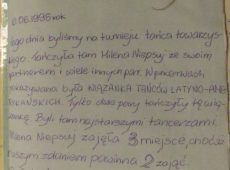 06.1996 rok
dnia byliśmy na turnieju tańca towarzys-
kiego tańczyła tam Milena Niepsuj ze swoim
partnerem i wiele innych par. W
pokazywana była WIĄZANKA TAŃCÓW LATYNO-AME-
RYKAŃSKICH. Tylko dwie pary tańczyły tę wią-
zankę. Byli tam najstarszymi tancerzami.
Milena Niepsuj zajęła 3 miejsce, chodź
naszym zdaniem powinna 2 zająć